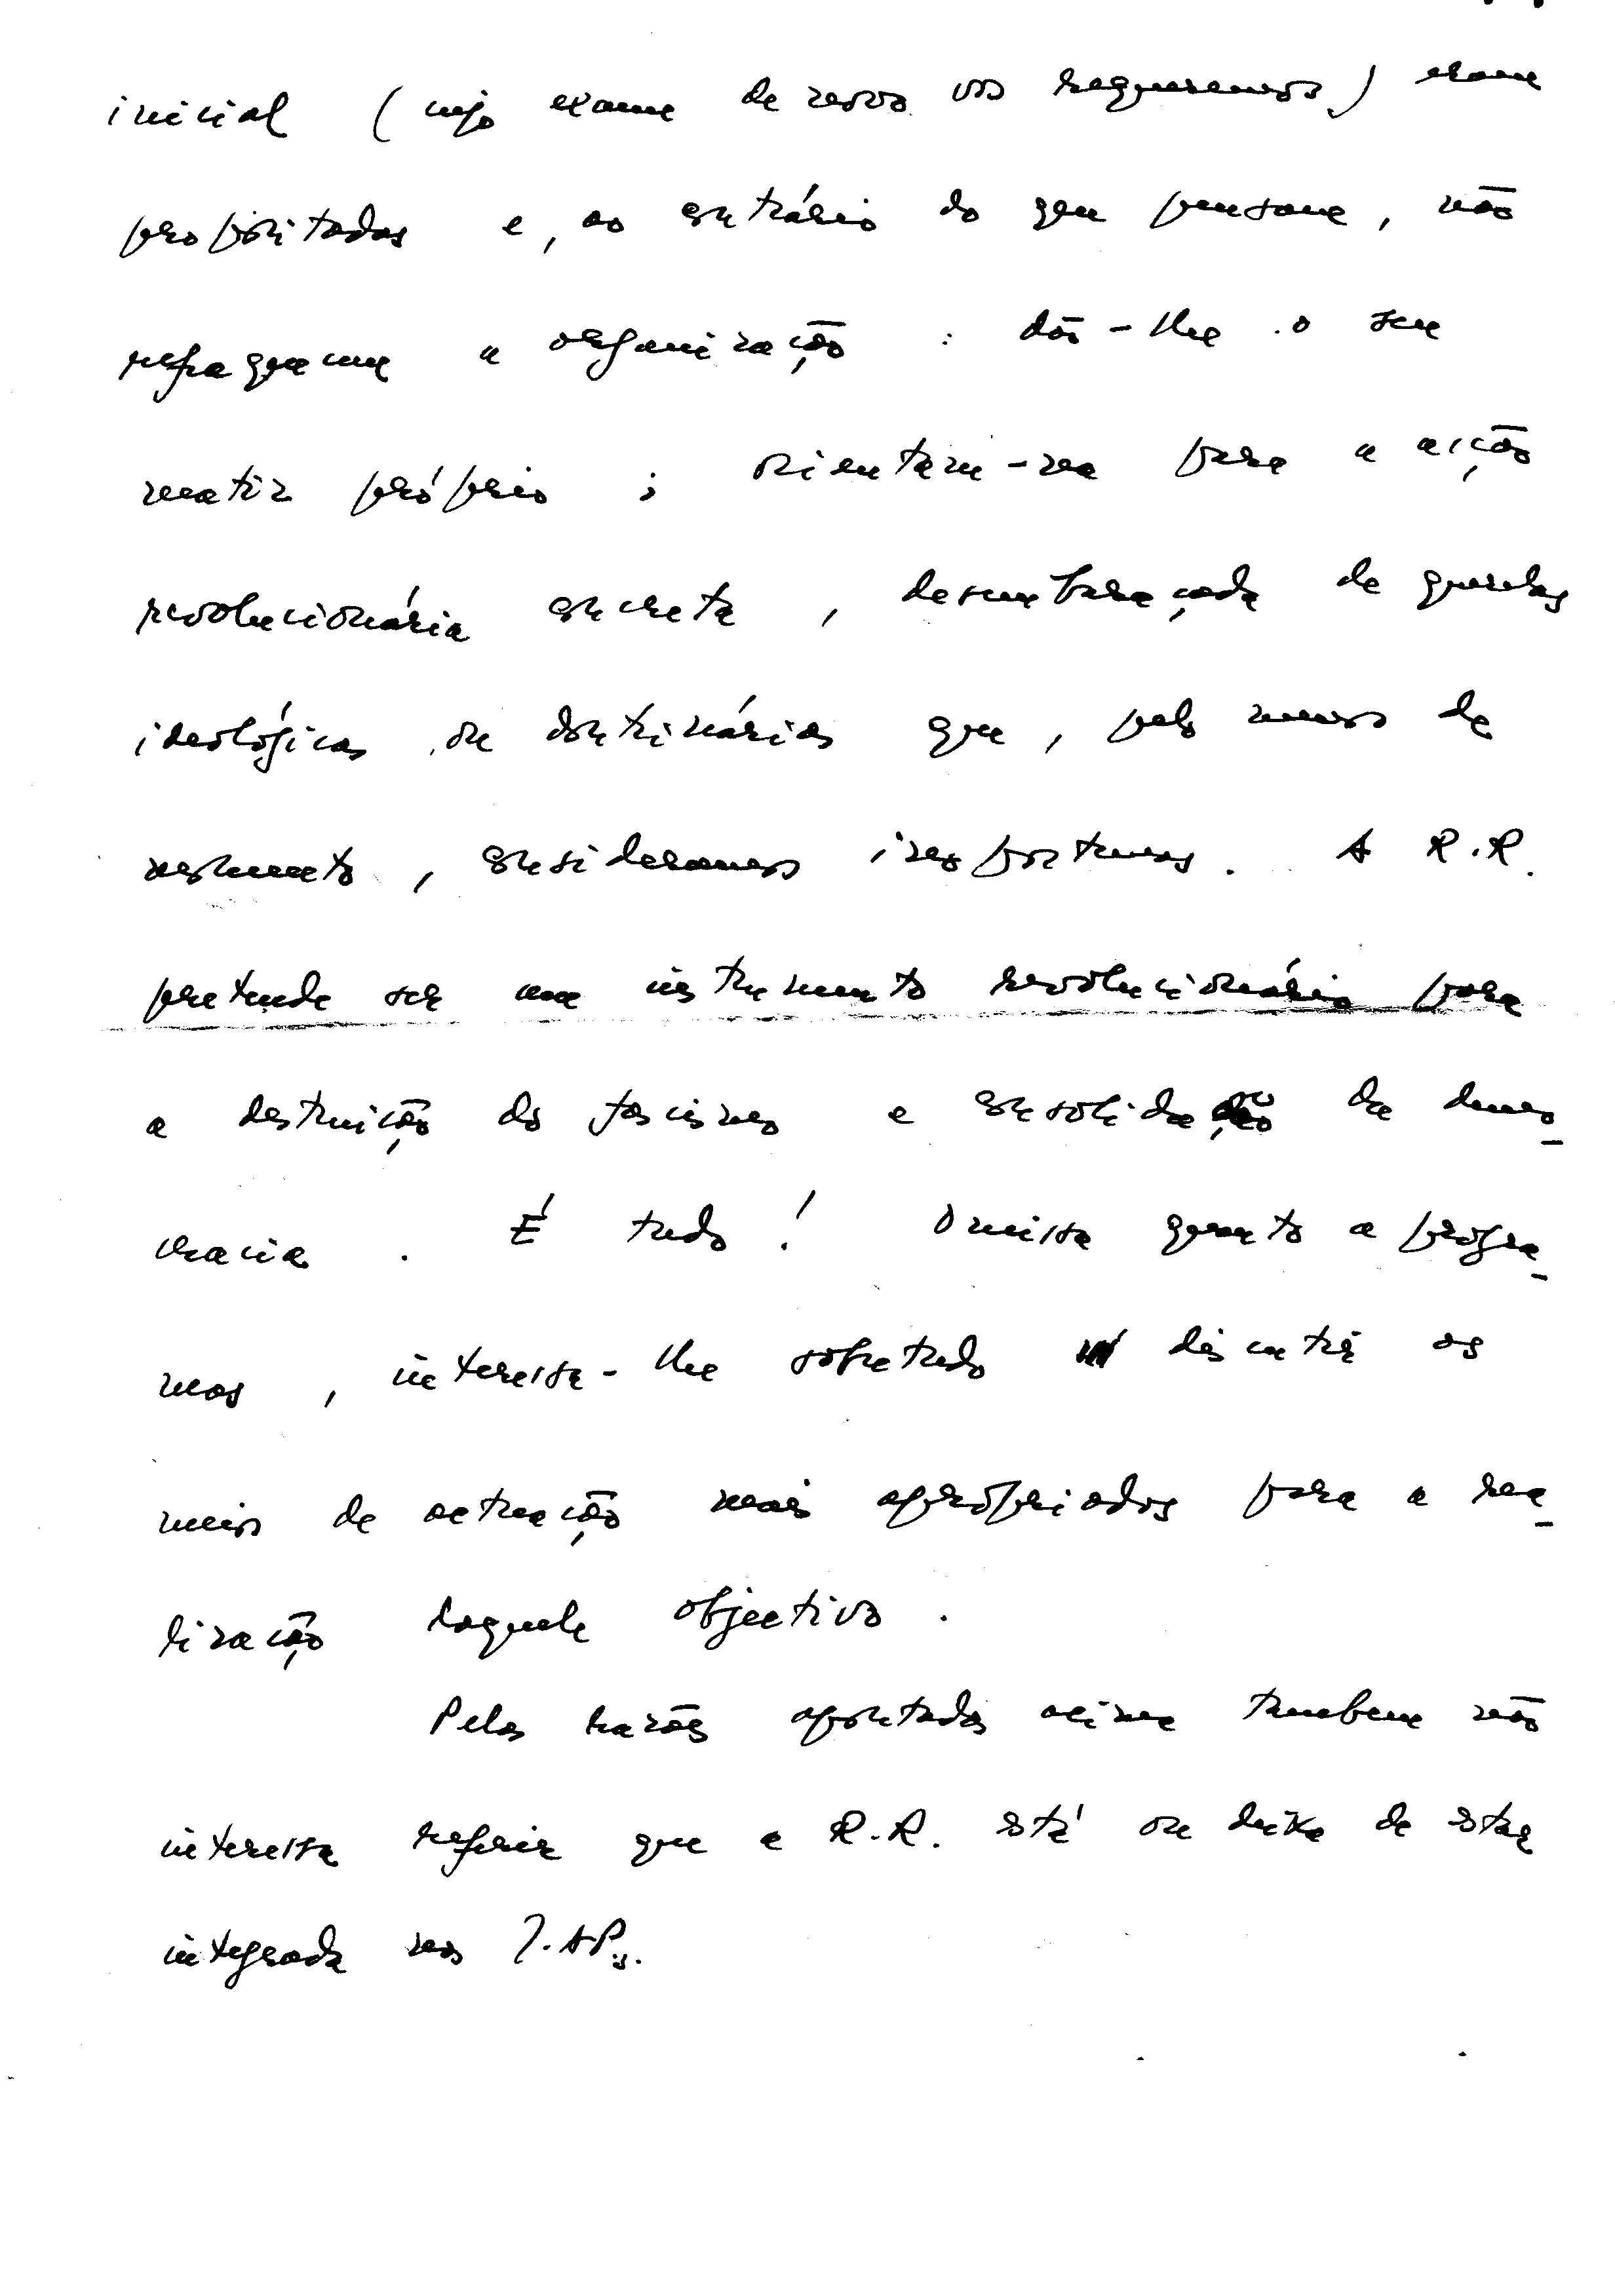 inicial (cujo exame de novo vos requeremos) eram
propositadas e, ao contrário do que pensam, não
enfraquecem a organização : dão-lhe o seu
matiz próprio ; orientam-na para a acção
revolucionária concreta , desembaraçada de querelas
ideológicas ou doutrinárias que , pelo menos de
momento , consideramos inoportunas . A R.R.
pretende ser um instrumento revolucionário para
a destruição do fascismo e consolidação da demo_
cracia . É tudo ! Omissa quanto a progra_
mas , interessa-lhe sobretudo discutir os
meios de actuação mais apropriados para a rea_
lização daquele objectivo .
Pelas razões apontadas acima tambem não
interessa referir que a R.R. está ou deixa de estar
integrada nas J.A.Ps.